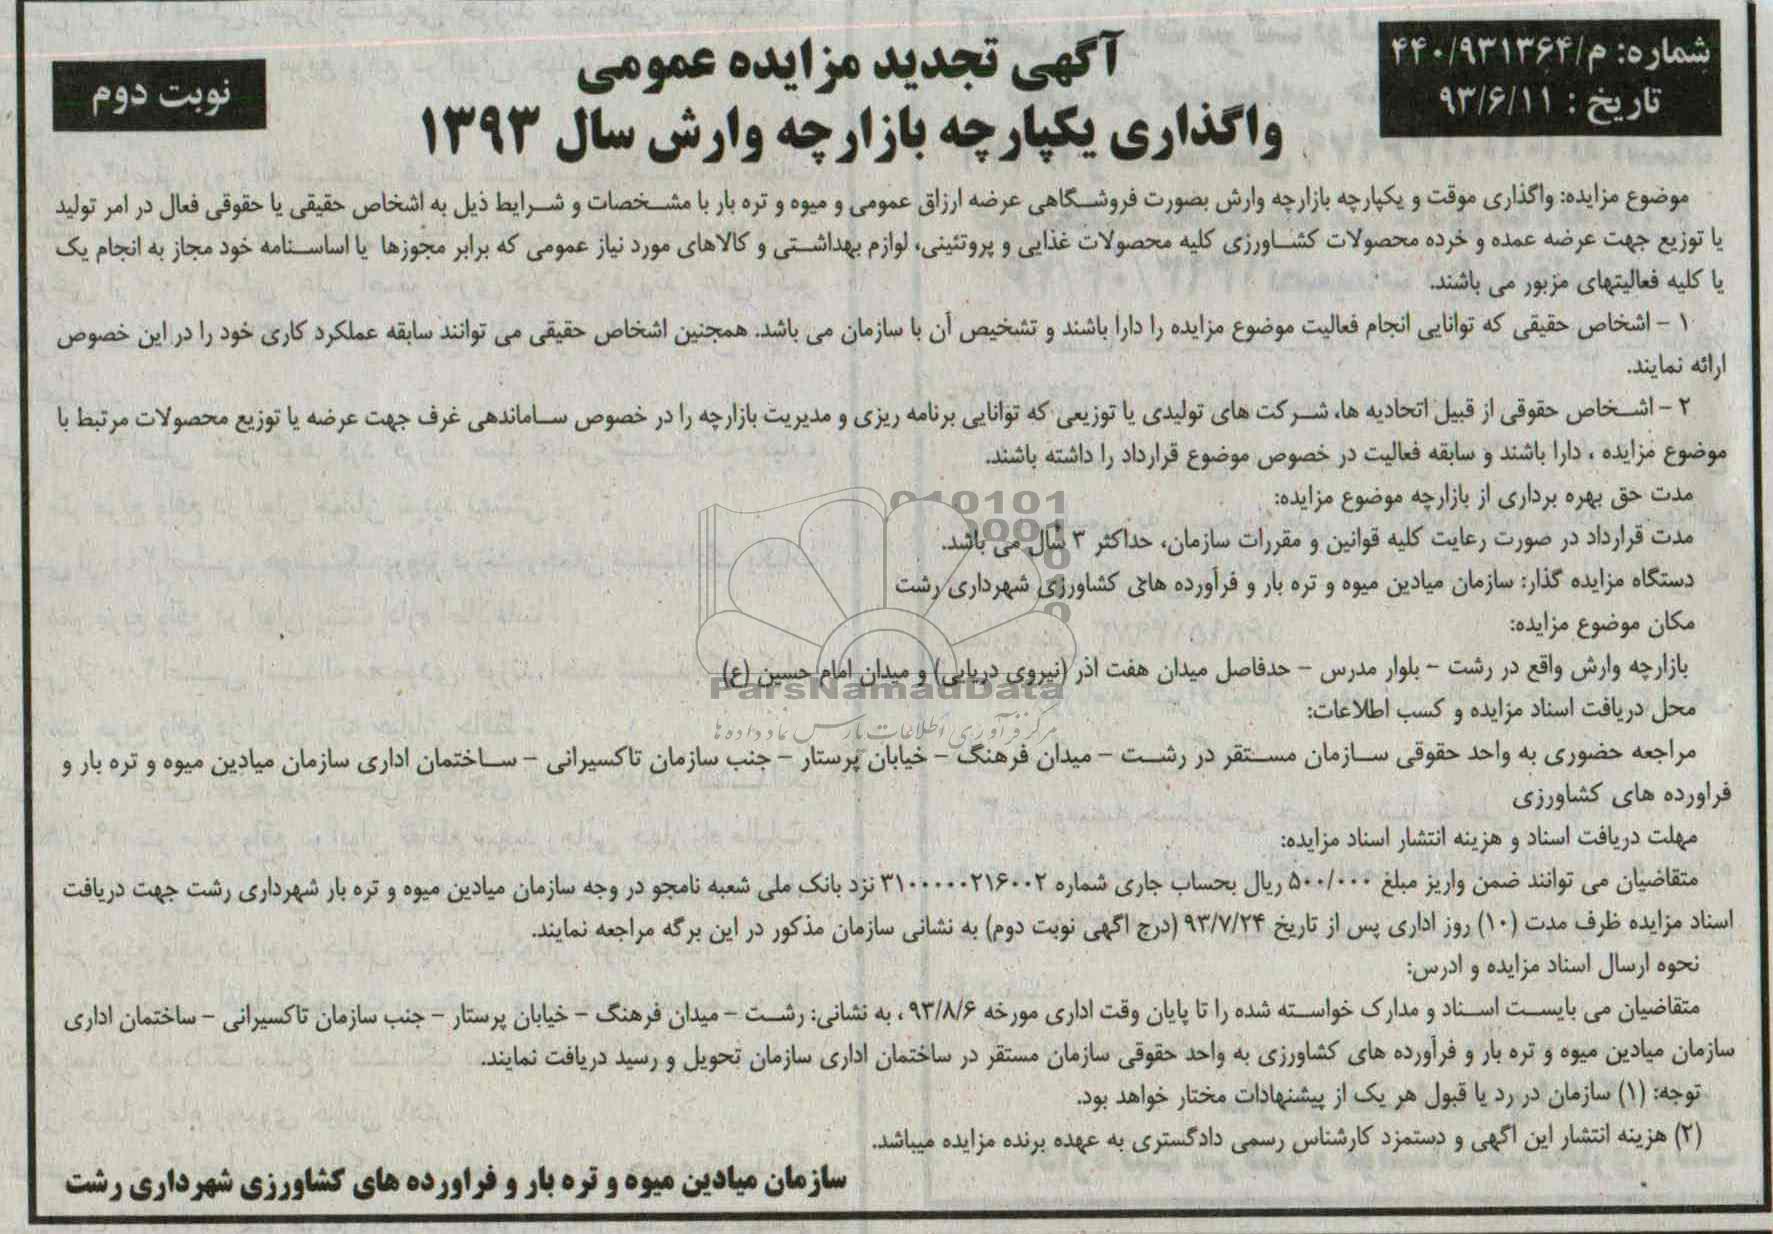 شماره: م/۴۴۰/۹۳۱۳۶۴
تاریخ : ۹۳/۶/۱۱
آگهی تجدید مزایده عمومی
واگذاری یکپارچه بازارچه وارش سال ۱۳۹۳
نوبت دوم
موضوع مزایده: واگذاری موقت و یکپارچه بازارچه وارش بصورت فروشگاهی عرضه ارزاق عمومی و میوه و تره بار با مشخصات و شرایط ذیل به اشخاص حقیقی یا حقوقی فعال در امر تولید
یا توزیع جهت عرضه عمده و خرده محصولات کشاورزی کلیه محصولات غذایی و پروتئینی، لوازم بهداشتی و کالاهای مورد نیاز عمومی که برابر مجوزها یا اساسنامه خود مجاز به انجام یک
یا کلیه فعالیتهای مزبور می باشند.
۱ - اشخاص حقیقی که توانایی انجام فعالیت موضوع مزایده را دارا باشند و تشخیص آن با سازمان می باشد. همچنین اشخاص حقیقی می توانند سابقه عملکرد کاری خود را در این خصوص
ارائه نمایند.
۲ - اشخاص حقوقی از قبیل اتحادیه ها، شرکت های تولیدی یا توزیعی که توانایی برنامه ریزی و مدیریت بازارچه را در خصوص ساماندهی غرف جهت عرضه یا توزیع محصولات مرتبط با
موضوع مزایده ، دارا باشند و سابقه فعالیت در خصوص موضوع قرارداد را داشته باشند.
مدت حق بهره برداری از بازارچه موضوع مزایده:
مدت قرارداد در صورت رعایت کلیه قوانین و مقررات سازمان، حداکثر ۳ سال می باشد.
دستگاه مزایده گذار: سازمان میادین میوه و تره بار و فرآورده های کشاورزی شهرداری رشت
مکان موضوع مزایده:
بازارچه وارش واقع در رشت - بلوار مدرس - حدفاصل میدان هفت آذر (نیروی دریایی) و میدان امام حسین (ع)
ParsNamadData
مرکز فرآوری اطلاعات پارس نماد داده ها
محل دریافت اسناد مزایده و کسب اطلاعات:
مراجعه حضوری به واحد حقوقی سازمان مستقر در رشت - میدان فرهنگ - خیابان پرستار - جنب سازمان تاکسیرانی - ساختمان اداری سازمان میادین میوه و تره بار و
فراورده های کشاورزی
مهلت دریافت اسناد و هزینه انتشار اسناد مزایده:
متقاضیان می توانند ضمن واریز مبلغ ۵۰۰/۰۰۰ ریال بحساب جاری شماره ۳۱۰۰۰۰۰۲۱۶۰۰۲ نزد بانک ملی شعبه نامجو در وجه سازمان میادین میوه و تره بار شهرداری رشت جهت دریافت
اسناد مزایده ظرف مدت (۱۰) روز اداری پس از تاریخ ۹۳/۷/۲۴ (درج آگهی نوبت دوم) به نشانی سازمان مذکور در این برگه مراجعه نمایند.
نحوه ارسال اسناد مزایده و آدرس:
متقاضیان می بایست اسناد و مدارک خواسته شده را تا پایان وقت اداری مورخه ۹۳/۸/۶ ، به نشانی: رشت - میدان فرهنگ - خیابان پرستار - جنب سازمان تاکسیرانی - ساختمان اداری
سازمان میادین میوه و تره بار و فرآورده های کشاورزی به واحد حقوقی سازمان مستقر در ساختمان اداری سازمان تحویل و رسید دریافت نمایند.
توجه: (۱) سازمان در رد یا قبول هر یک از پیشنهادات مختار خواهد بود.
(۲) هزینه انتشار این آگهی و دستمزد کارشناس رسمی دادگستری به عهده برنده مزایده میباشد.
سازمان میادین میوه و تره بار و فراورده های کشاورزی شهرداری رشت